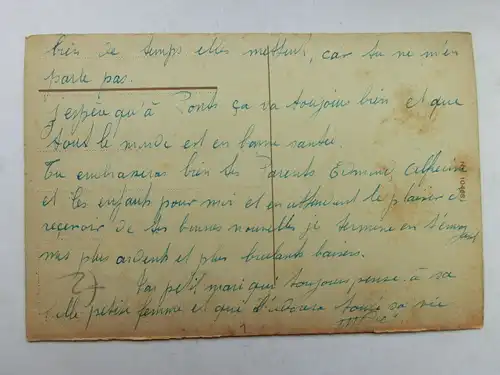 bien de temps elles mettent, car tu ne m'en
parle pas.
J'espère qu'à Ponts ça va toujours bien et que
tout le monde est en bonne santée.
Tu embrasseras bien les Parents Edmond, Catherine
et les enfants pour moi et en attendant le plaisir de
reçevoir de tes bonnes nouvelles je termine en t'envoyant
mes plus ardents et plus brulants baisers.
Ton petit mari qui toujours pense à sa
belle petite femme et qui t'adorera toute sa vie